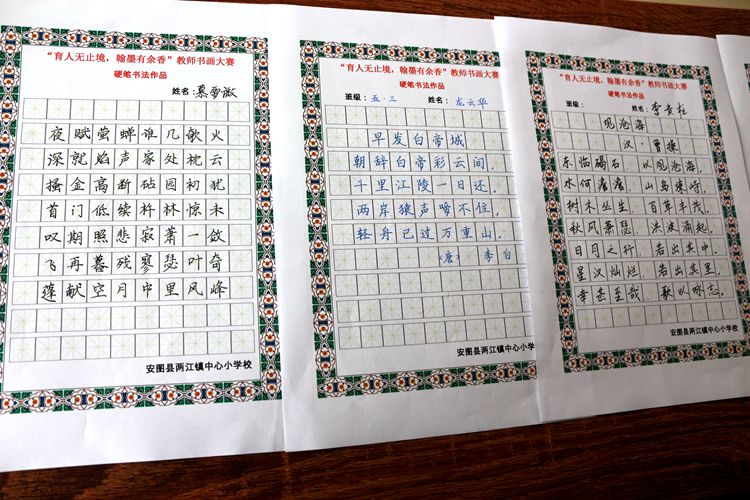 “育人无止境，翰墨有余香”教师书画大赛
硬笔书法作品
姓名：
火云犹未敛奇峰
欹枕初惊一叶风
几处园林萧瑟里
谁家砧杵寂寥中
蝉声断续悲残月
萤焰高低照暮空
赋就金门期再献
夜深搔首叹飞蓬
安图县两江镇中心小学校
“育人无止境，翰墨有余香”教师书画大赛
硬笔书法作品
班级：五.三 姓名：龙云华
早发白帝城
朝辞白帝彩云间，
千里江陵一日还。
两岸猿声啼不住，
轻舟已过万重山。
（唐）李白
安图县两江镇中心小学校
“育人无止境，翰墨有余香”教师书画大赛
硬笔书法作品
班级： 姓名：
观沧海
汉·曹操
东临碣石 以观沧海，
水何澹澹，山岛竦峙，
树木丛生，百草丰茂，
秋风萧瑟，洪波涌起，
日月之行，若出其中，
星汉灿烂，若出其里，
幸甚至哉，歌以咏志。
安图县两江镇中心小学校